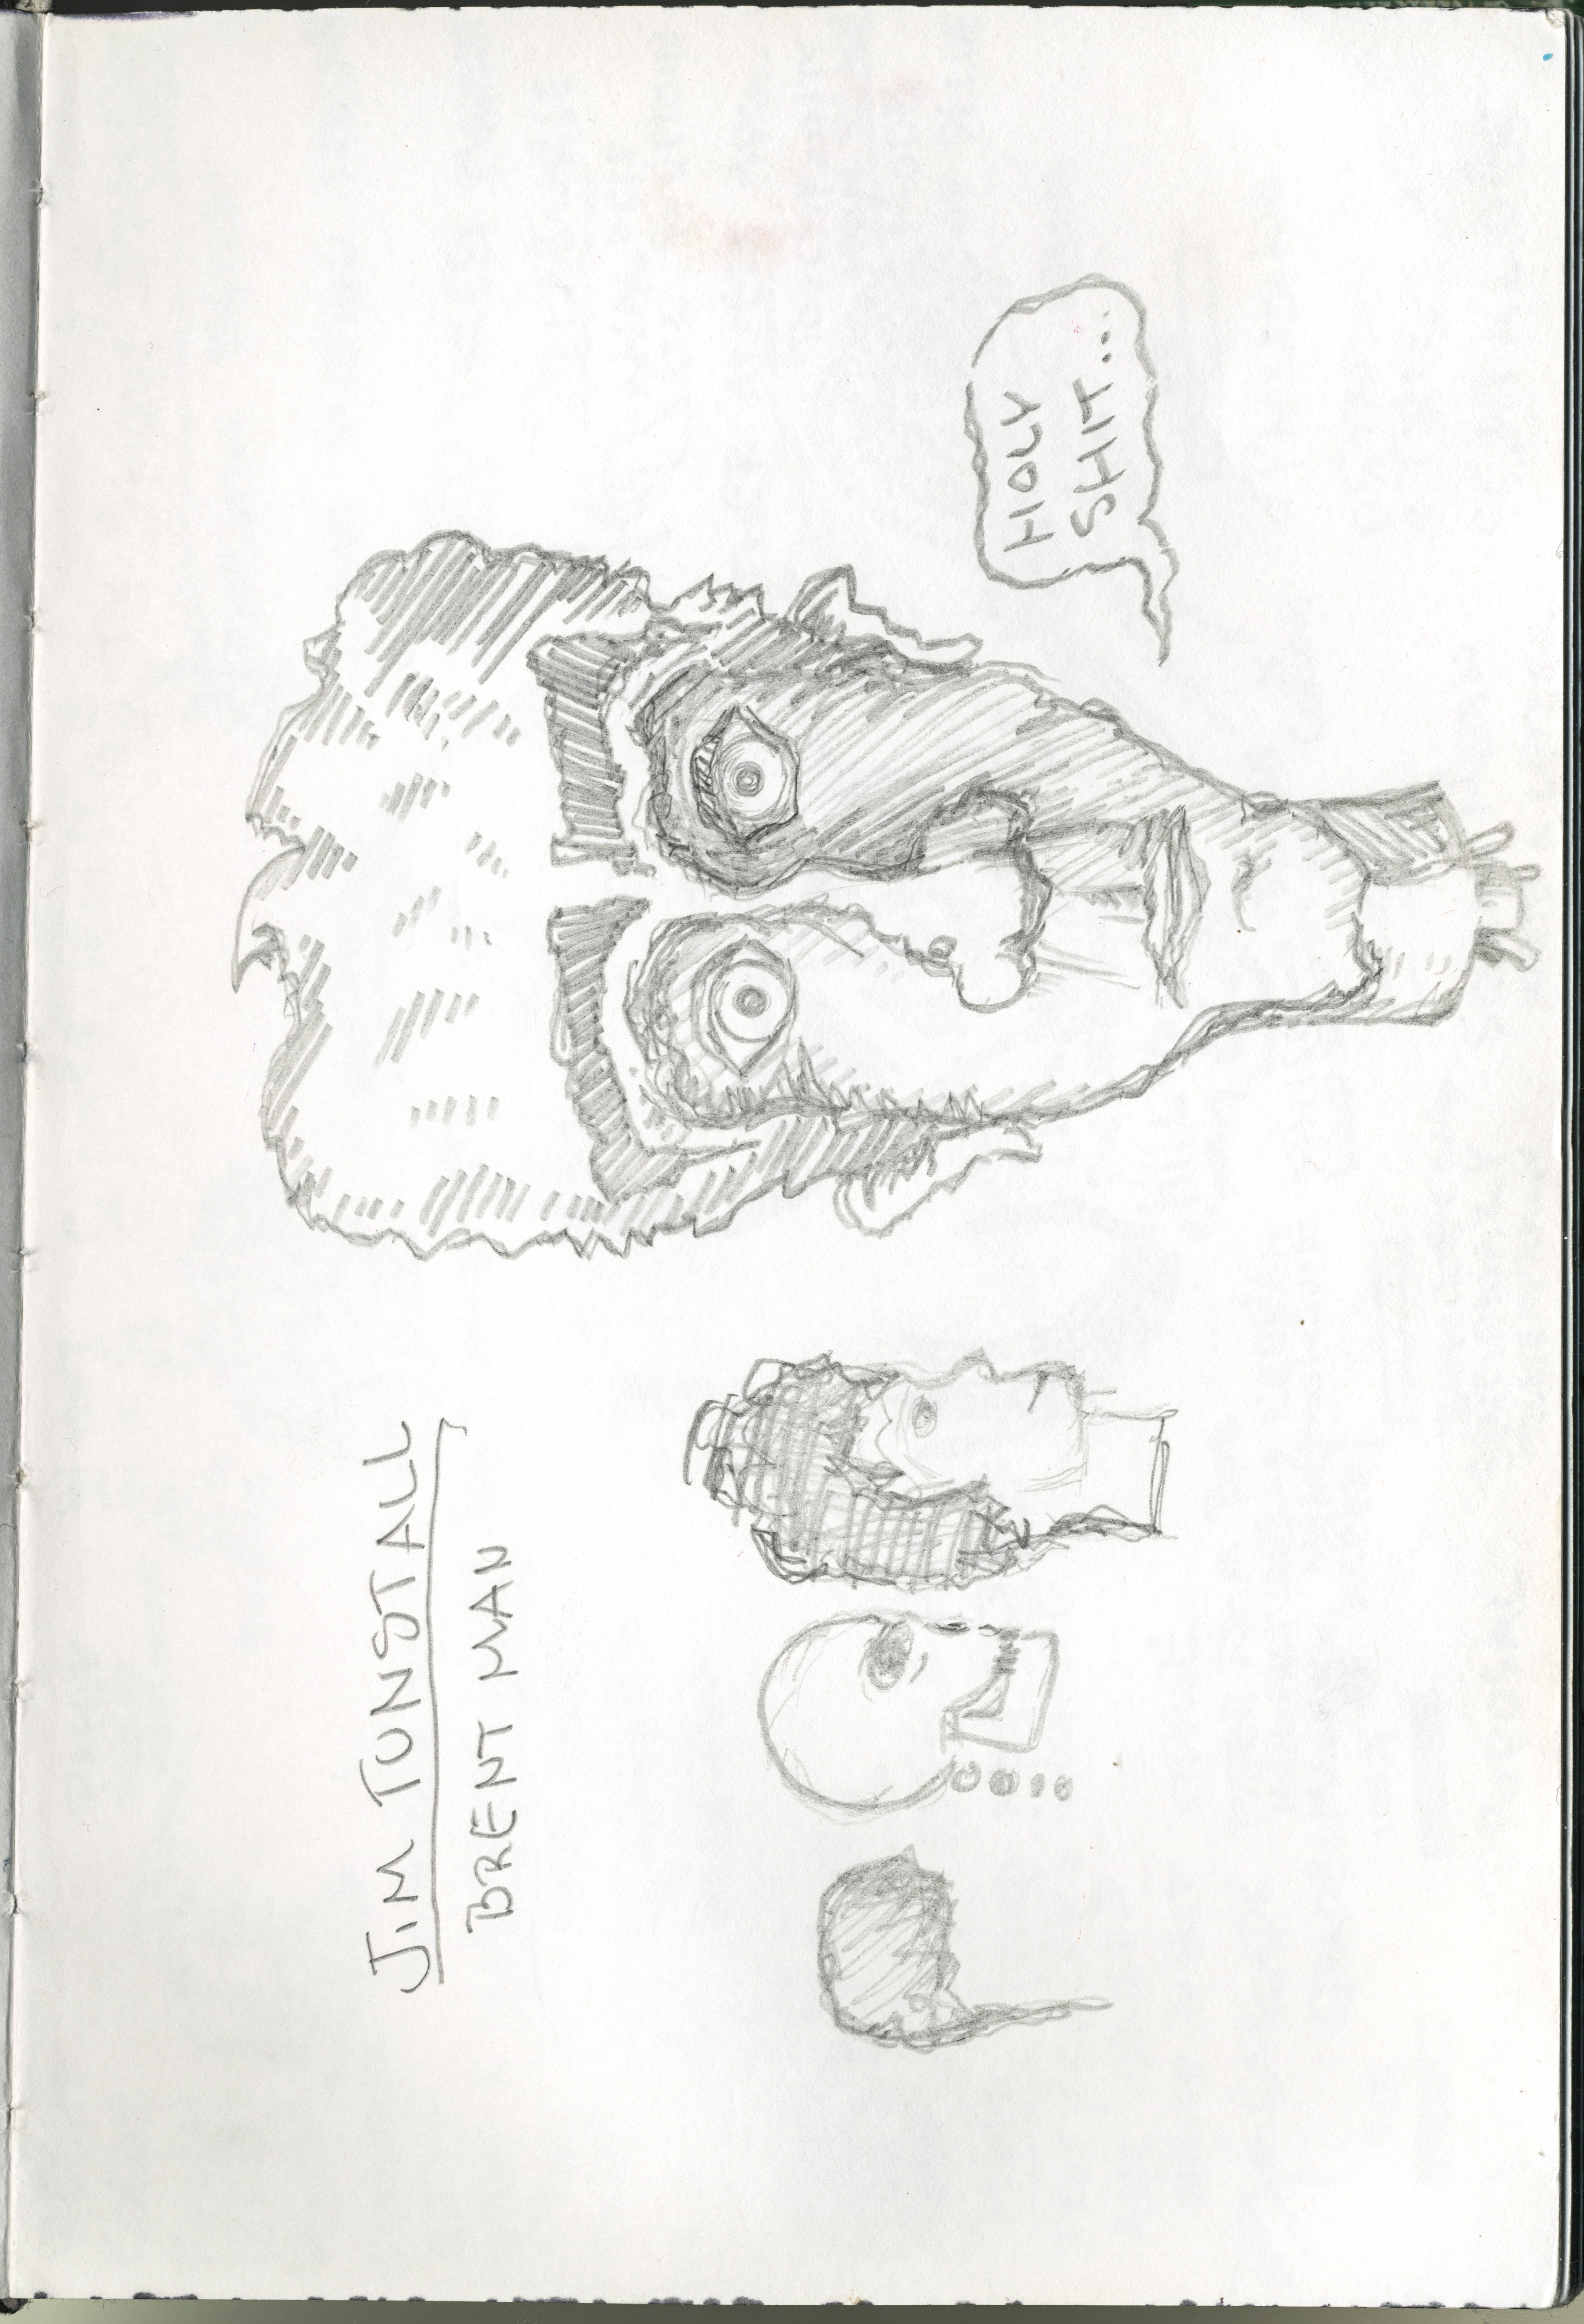 JIM TUNSTALL
BRENT MAN
HOLY
SHIT...